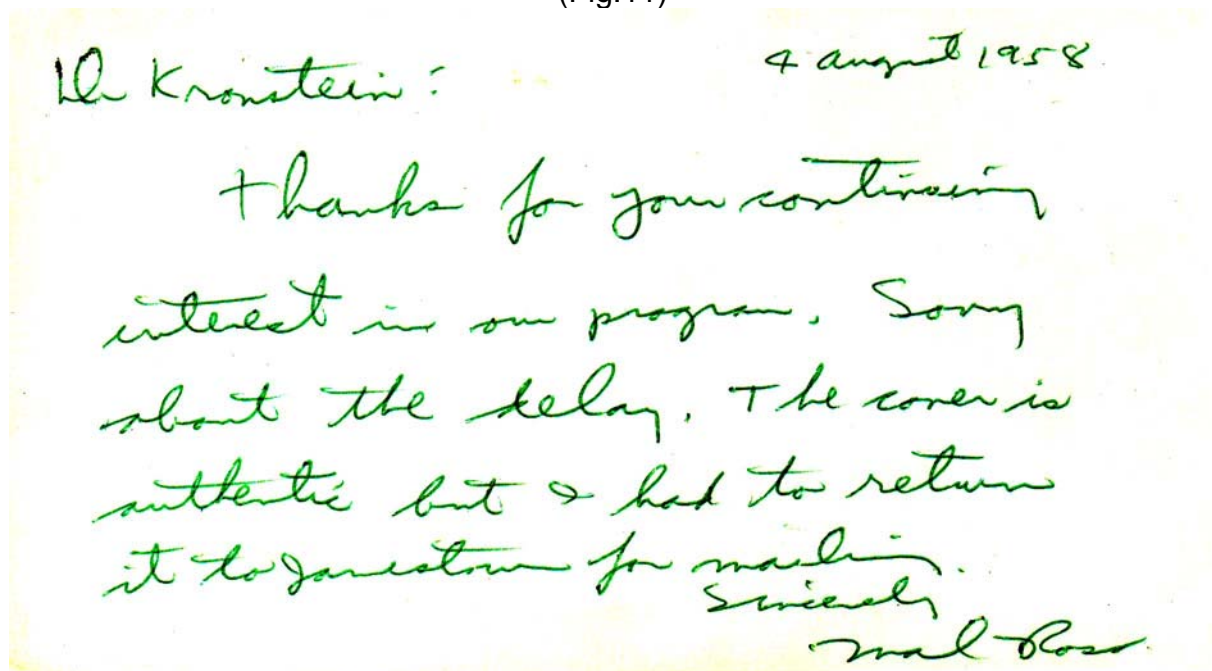 (Fig.11)
4 August 1958
Dr Kronstein:
Thanks for your continuing
interest in our program. Sorry
about the delay. The cover is
authentic but I had to return
it to Jamestown for mailing.
Sincerely
Mal Ross